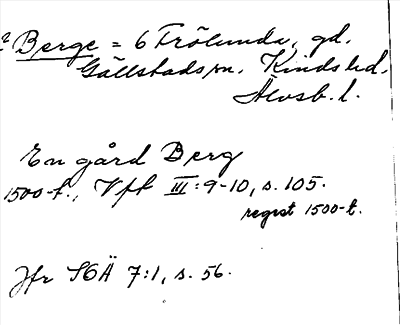 ? Berge = 6 Frölunda, gd.
Gällstads sn. Kinds hd.
Älvsb. l.
En gård Berg
1500-t., Vft III: 9-10, s. 105.
regest 1500-t.
Jfr SOÄ 7:1, s. 56.